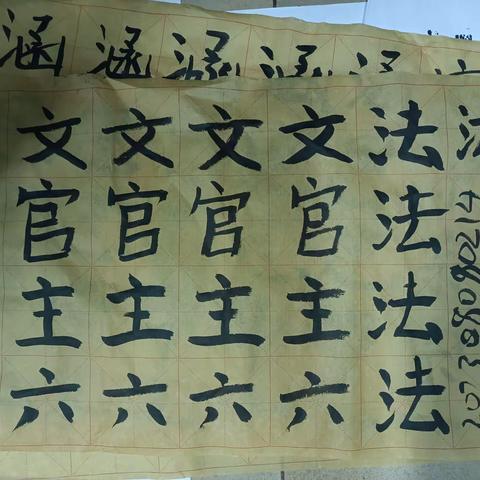 涵涵涵涵
文文文文法
官官官官法
主主主主法
六六六六法